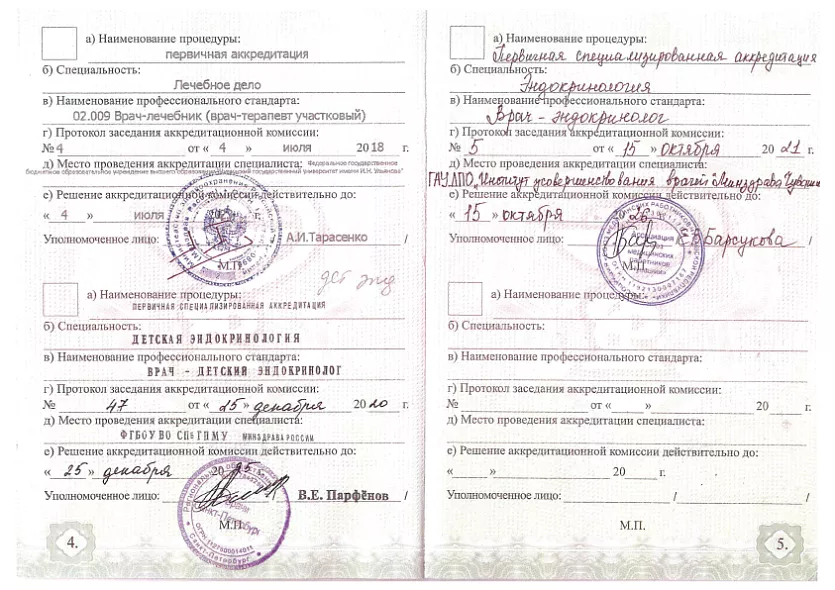 а) Наименование процедуры:
первичная аккредитация
б) Специальность:
Лечебное дело
в) Наименование профессионального стандарта:
02.009 Врач-лечебник (врач-терапевт участковый)
г) Протокол заседания аккредитационной комиссии:
№ 4 от « 4 » июля 2018 г.
д) Место проведения аккредитации специалиста: Федеральное государственное
бюджетное образовательное учреждение высшего образования "Чувашский государственный университет имени И.Н. Ульянова"
е) Решение аккредитационной комиссии действительно до:
« 4 » июля 20 г.
Уполномоченное лицо: А.И.Тарасенко /
М.П.
дет энд
а) Наименование процедуры:
ПЕРВИЧНАЯ СПЕЦИАЛИЗИРОВАННАЯ АККРЕДИТАЦИЯ
б) Специальность:
ДЕТСКАЯ ЭНДОКРИНОЛОГИЯ
в) Наименование профессионального стандарта:
ВРАЧ - ДЕТСКИЙ ЭНДОКРИНОЛОГ
г) Протокол заседания аккредитационной комиссии:
№ 47 от « 25 » декабря 2020 г.
д) Место проведения аккредитации специалиста:
ФГБОУ ВО СПбГПМУ МИНЗДРАВА РОССИИ
е) Решение аккредитационной комиссии действительно до:
« 25 » декабря 2025 г.
Уполномоченное лицо: / В.Е. Парфёнов /
М.П.
Санкт-Петербург
4.
а) Наименование процедуры:
Первичная специализированная аккредитация
б) Специальность:
Эндокринология
в) Наименование профессионального стандарта:
Врач - эндокринолог
г) Протокол заседания аккредитационной комиссии:
№ 5 от « 15 » октября 2021 г.
д) Место проведения аккредитации специалиста:
ГАУ ДПО "Институт усовершенствования врачей" Минздрава Чувашии
е) Решение аккредитационной комиссии действительно до:
« 15 » октября 2026 г.
Уполномоченное лицо: / К.В. Барсукова /
Ассоциация
медицинских
работников
М.П.
а) Наименование процедуры:
б) Специальность:
в) Наименование профессионального стандарта:
г) Протокол заседания аккредитационной комиссии:
№ от « » 20 г.
д) Место проведения аккредитации специалиста:
е) Решение аккредитационной комиссии действительно до:
« » 20 г.
Уполномоченное лицо: / /
М.П.
5.